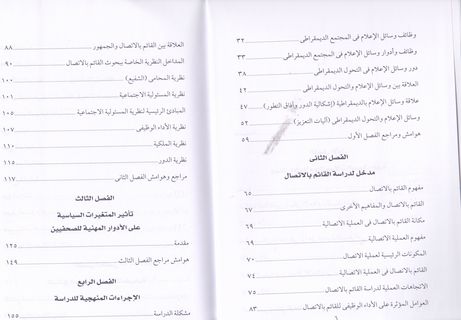 وظائف وسائل الإعلام فى المجتمع الديمقراطى ٣٢
وظائف وأدوار وسائل الإعلام فى المجتمع الديمقراطى ٣٣
دور وسائل الإعلام فى التحول الديمقراطى ٣٨
العلاقة بين وسائل الإعلام والتحول الديمقراطى ٤٢
علاقة وسائل الإعلام بالديمقراطية (إشكالية الدور وآفاق التطور) ٤٧
وسائل الإعلام والتحول الديمقراطى (آليات التعزيز) ٥٢
هوامش ومراجع الفصل الأول ٥٩
الفصل الثانى
مدخل لدراسة القائم بالاتصال
مفهوم القائم بالاتصال ٦٥
القائم بالاتصال والمفاهيم الأخرى ٦٧
مكانة القائم بالاتصال فى العملية الاتصالية ٦٩
مفهوم العملية الاتصالية ٦٩
المكونات الرئيسية لعملية الاتصال ٧٠
القائم بالاتصال فى العملية الاتصالية ٧٤
الاتجاهات العملية لدراسة القائم بالاتصال ٧٥
العوامل المؤثرة على الأداء الوظيفى للقائم بالاتصال ٨٣
العلاقة بين القائم بالاتصال والجمهور ٨٨
المداخل النظرية الخاصة ببحوث القائم بالاتصال ٩٠
نظرية المحامى (الشفيع) ١٠٠
نظرية المسئولية الاجتماعية ١٠١
المبادئ الرئيسية لنظرية المسئولية الاجتماعية ١٠٥
نظرية الأداء الوظيفى ١٠٧
نظرية الملكية ١١٠
نظرية الدور ١١٥
مراجع وهوامش الفصل الثانى ١١٧
الفصل الثالث
تأثير المتغيرات السياسية
على الأدوار المهنية للصحفيين
مقدمة ١٢٥
هوامش مراجع الفصل الثالث ١٤٩
الفصل الرابع
الإجراءات المنهجية للدراسة
مشكلة الدراسة ١٥٥